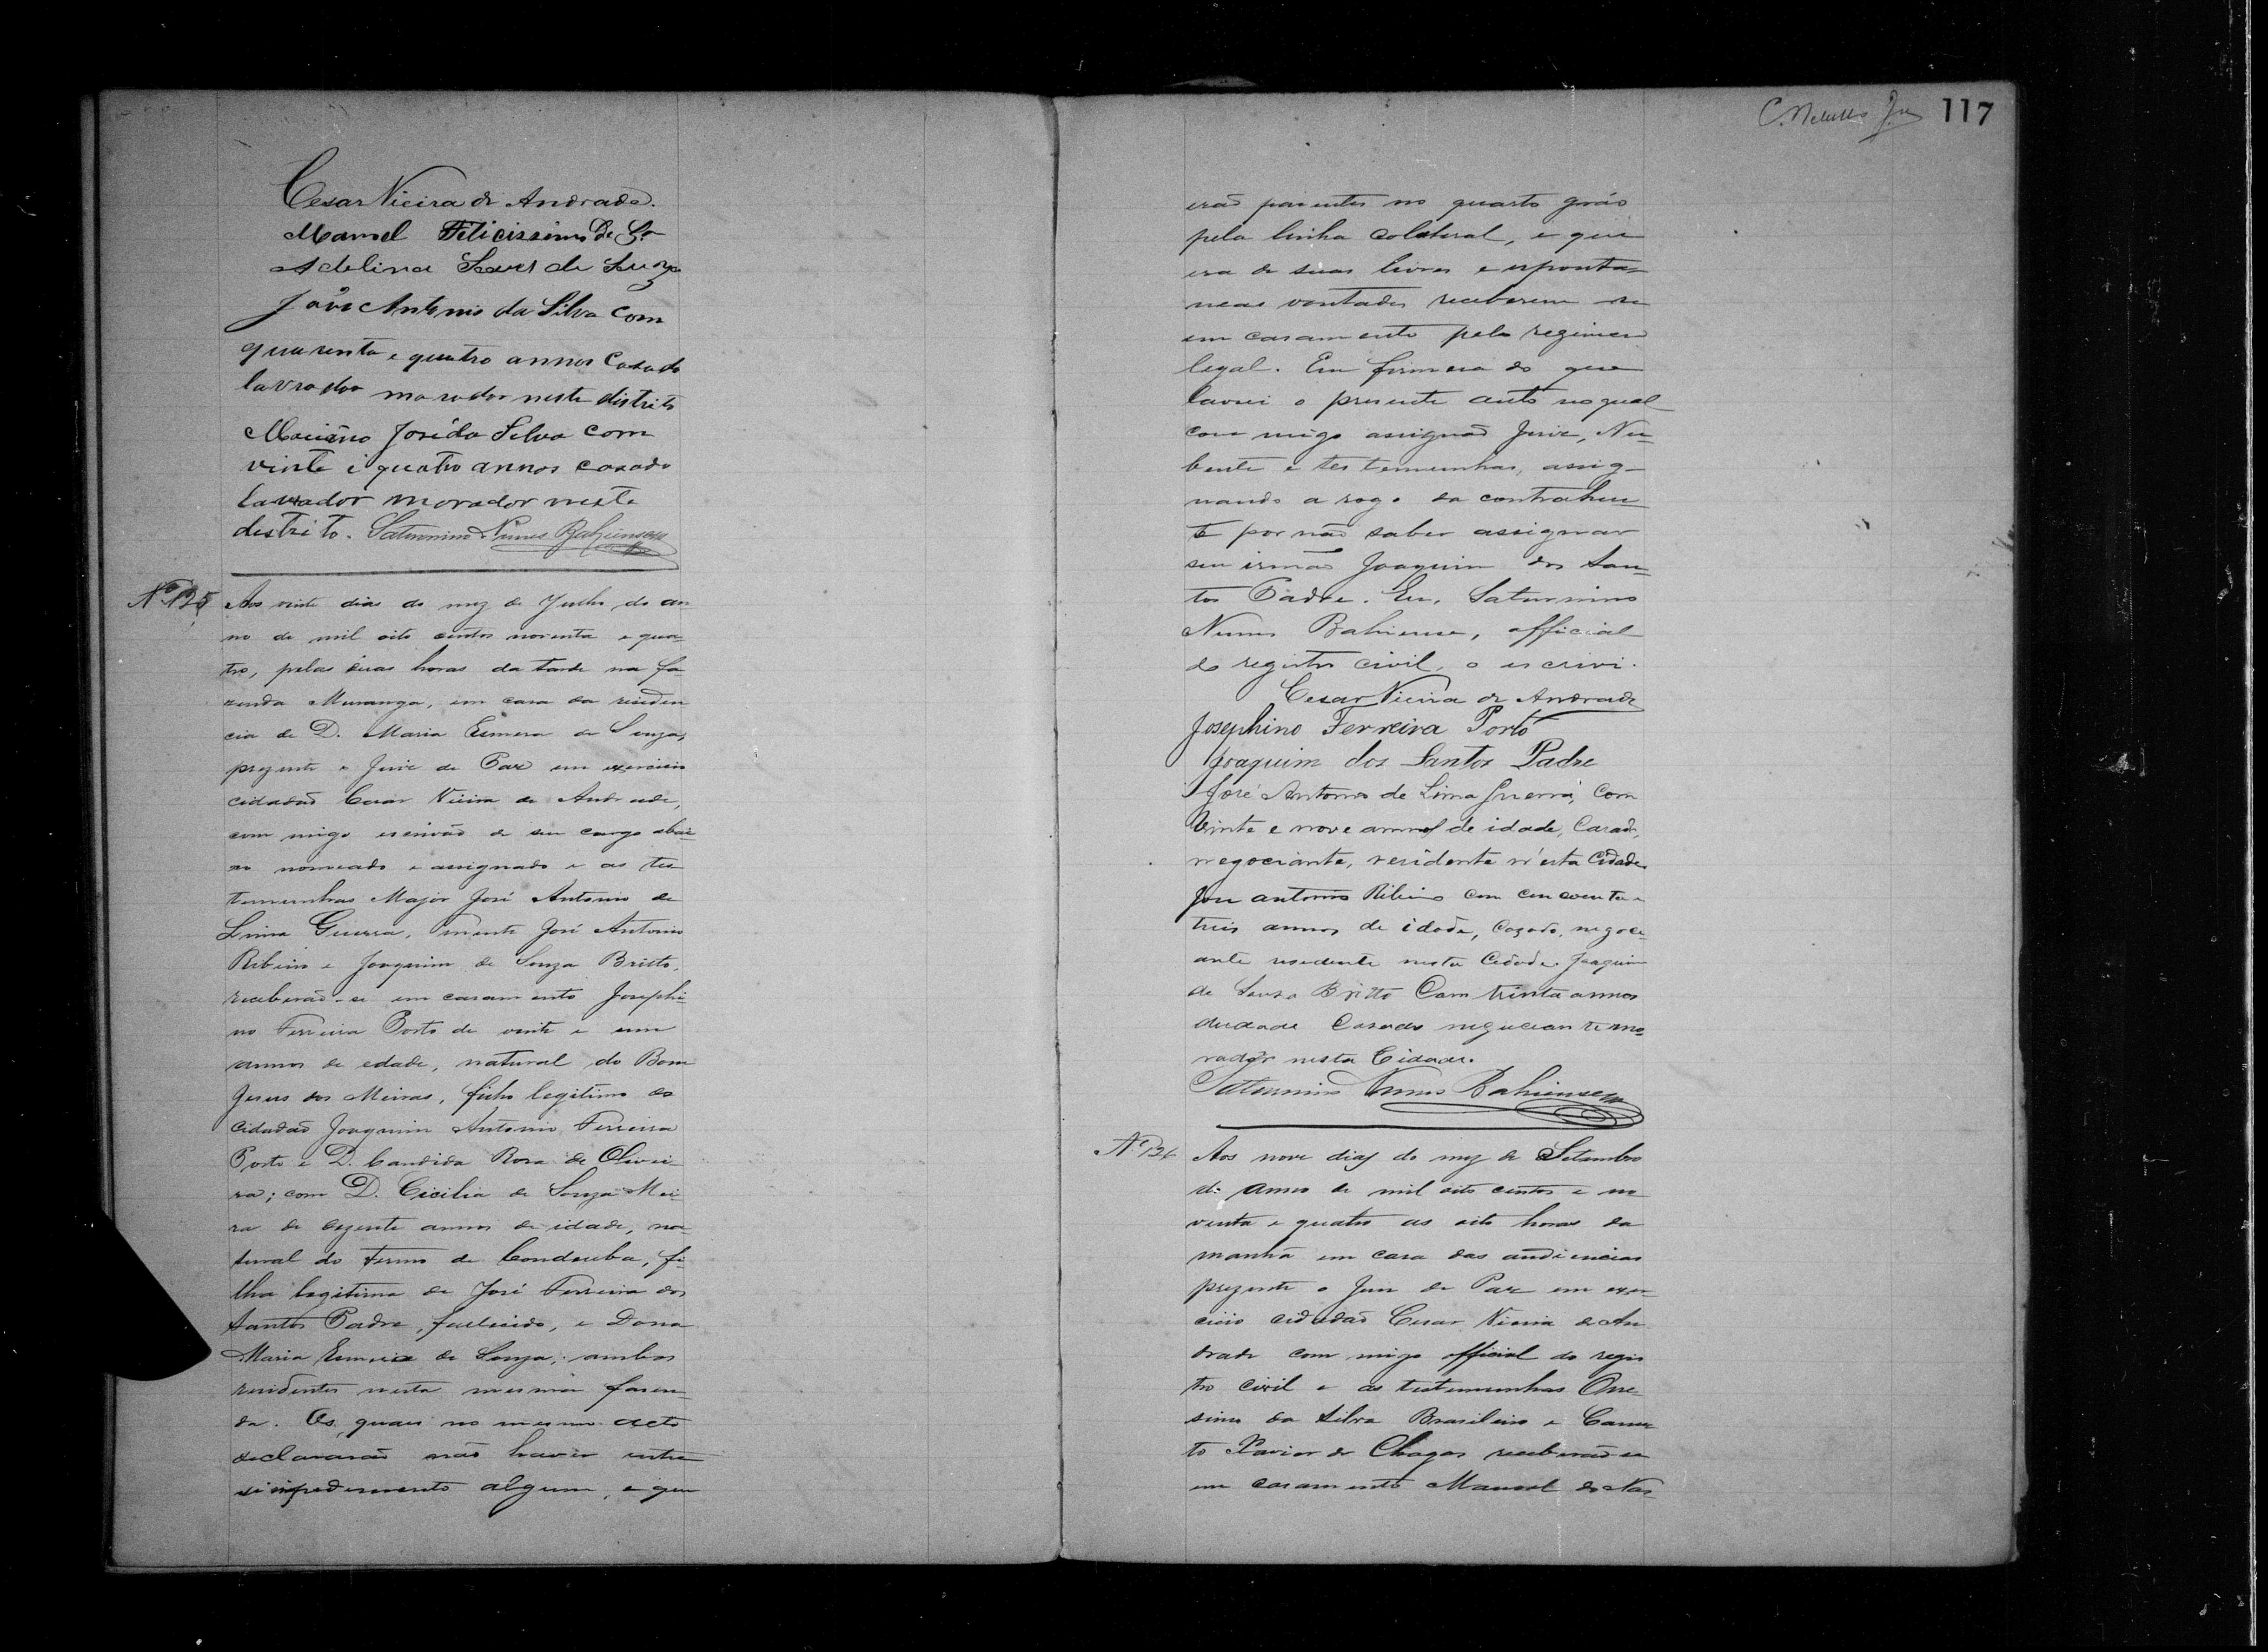 Cesar Vieira de Andrade.
Manoel Felicissimo De Sza
Adelina Alves de Souza
João Antonio da Silva com
quarenta e quatro annos Casado
lavrador morador neste distrito
Marianno José da Silva com
vinte i quatro annos casado
Lavrador morador neste
distrito. Saturnino Nunes Bahiense
Nº 125
Aos vinte dias do mez de Julho do an
no de mil oito centos noventa e qua-
tro, pelas duas horas da tarde na fa
zenda Muranga, em casa da residen
cia de D. Maria de Souza,
prezente o Juiz de Paz em exercicio
cidadão Cesar Vieira de Andrade,
com migo escrivão de seu cargo abai-
xo nomeado e assignado e as tes
temunhas Major José Antonio de
Lima Guerra, José Antonio
Ribeiro e Joaquim de Souza Britto,
receberão-se em casamento Josephi-
no Ferreira Porto de vinte e um
annos de edade, natural do Bom
Jesus dos Meiras, filho legitimo do
cidadão Joaquim Antonio Ferreira
Porto e D. Candida Rosa de Olivei-
ra; com D. Cicilia de Souza Mei-
ra de dezente annos de idade, na-
tural do Termo de Condeuba, fi-
lha legitima de José Ferreira dos
Santos Padre, fallecido, e Dona
Maria de Souza; ambos
residentes nesta mesma fazen-
da. Os quaes no mesmo acto
declararão não haver entre
si impedimento algum, e que
C. Meirelles Jor 117
erão parentes no quarto gráo
pela linha colateral, e que
era de suas livres e esponta-
neas vontades receberem se
em casamento pelo regimen
legal. Em firmeza do que
lavrei o presente auto no qual
com migo assignão Juiz, Nu-
bente e testemunhas, assig-
nando a rogo da contrahen-
te por não saber assignar
seu irmão Joaquim dos San-
tos Padre. Eu, Saturnino
Nunes Bahiense, official
do registro civil, o escrivi.
Cesar Vieira de Andrade
Josephino Ferreira Porto
Joaquim dos Santos Padre
José Antonio de Lima Guerra, com
Vinte e nove annos de idade, Casad,
negociante, residente n'esta Cidade
José antonio Ribeiro com cincoenta e
tres annos de idade, Cazado, negoci-
ante residente nesta Cidade. Joaquim
de Souza Britto Com trinta annos
deidade Casado negociante mo-
rador nesta Cidade.
Saturnino Nunes Bahiense
Nº 126
Aos nove dias do mez de Setembro
do anno de mil oito centos e no
venta e quatro as oito horas da
manhã em casa das audiencias
prezente o Juiz de Paz em exer-
cicio cidadão Cesar Vieira de An
drade com migo official do regis
tro civil e as testemunhas One-
simo da Silva Brasileiro e
Xavier de Chagas receberão se
em casamento Manoel do Nas-